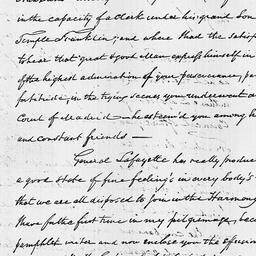 in the capacity of a clerk under his grand Son
Temple Franklin, and where I had the Satisf
to hear that great & good Man express himself in
of the highest admiration of your perseverance, pa
fortitude, in the trying scenes you underwent a
Court of Madrid — he esteem'd you among h
and constant friends —
General Lafayette has really produc
a good state of fine feeling's in every body's
that we are all disposed to Join in the Harmony
I have for the first time in my pilgrimage, bec
pamphlet writer and now enclose you the effusion